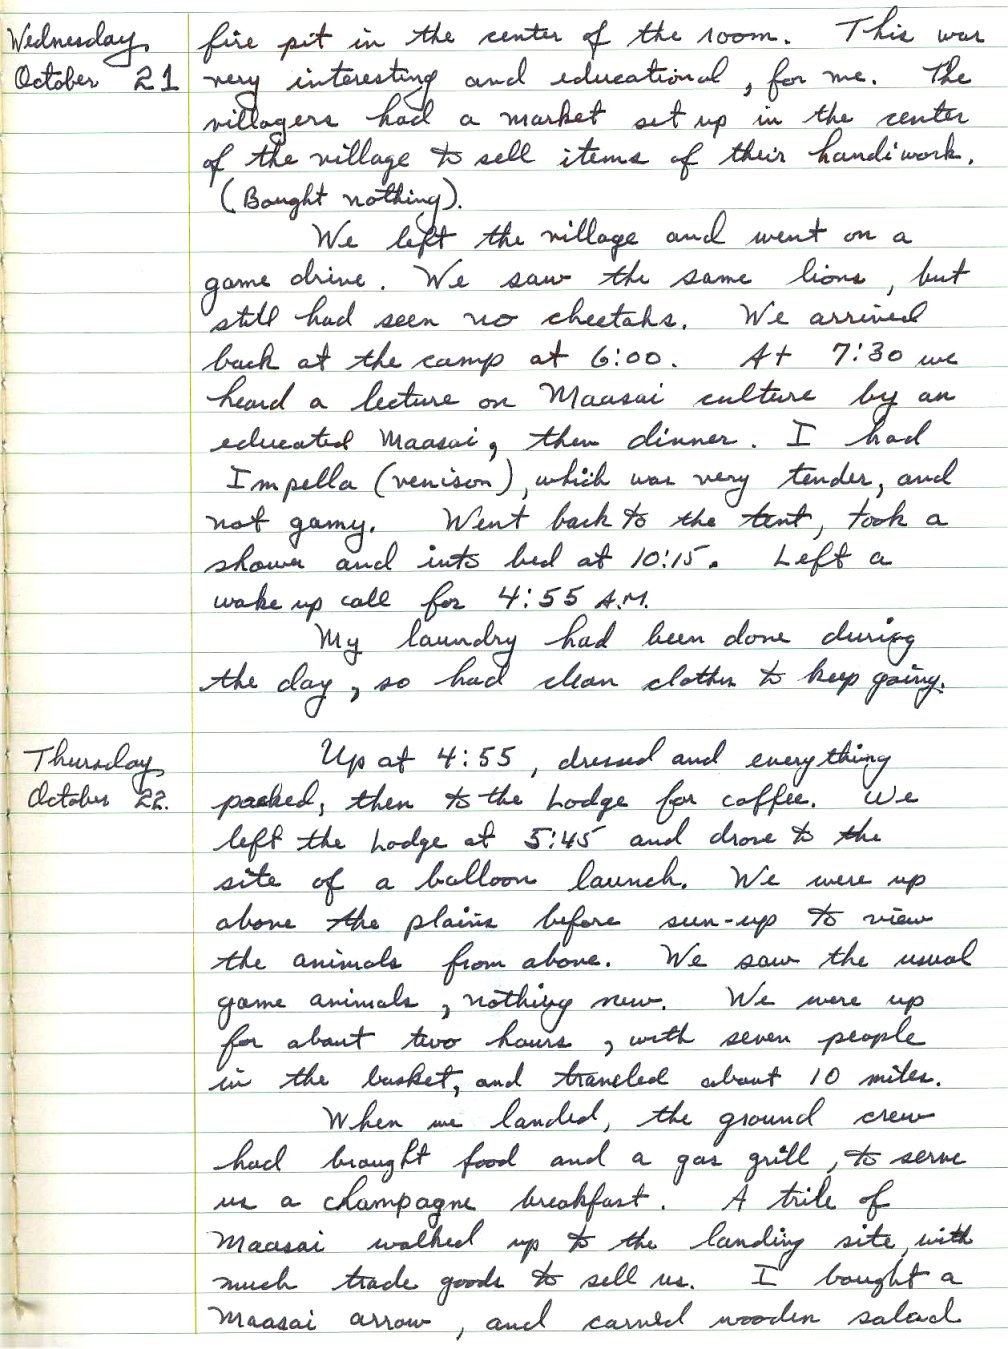 Wednesday,
October 21
fire pit in the center of the room. This was
very interesting and educational, for me. The
villagers had a market set up in the center
of the village to sell items of their handiwork.
(Bought nothing).
We left the village and went on a
game drive. We saw the same lions, but
still had seen no cheetahs. We arrived
back at the camp at 6:00. At 7:30 we
heard a lecture on Maasai culture by an
educated Maasai, then dinner. I had
Impella (venison), which was very tender, and
not gamy. Went back to the tent, took a
shower and into bed at 10:15. Left a
wake up call for 4:55 A.M.
My laundry had been done during
the day, so had clean clothes to keep going.
Thursday,
October 22.
Up at 4:55, dressed and everything
packed, then to the Lodge for coffee. We
left the Lodge at 5:45 and drove to the
site of a balloon launch. We were up
above the plains before sun-up to view
the animals from above. We saw the usual
game animals, nothing new. We were up
for about two hours, with seven people
in the basket, and traveled about 10 miles.
When we landed, the ground crew
had brought food and a gas grill, to serve
us a champagne breakfast. A tribe of
Maasai walked up to the landing site, with
much trade goods to sell us. I bought a
Maasai arrow, and carved wooden salad